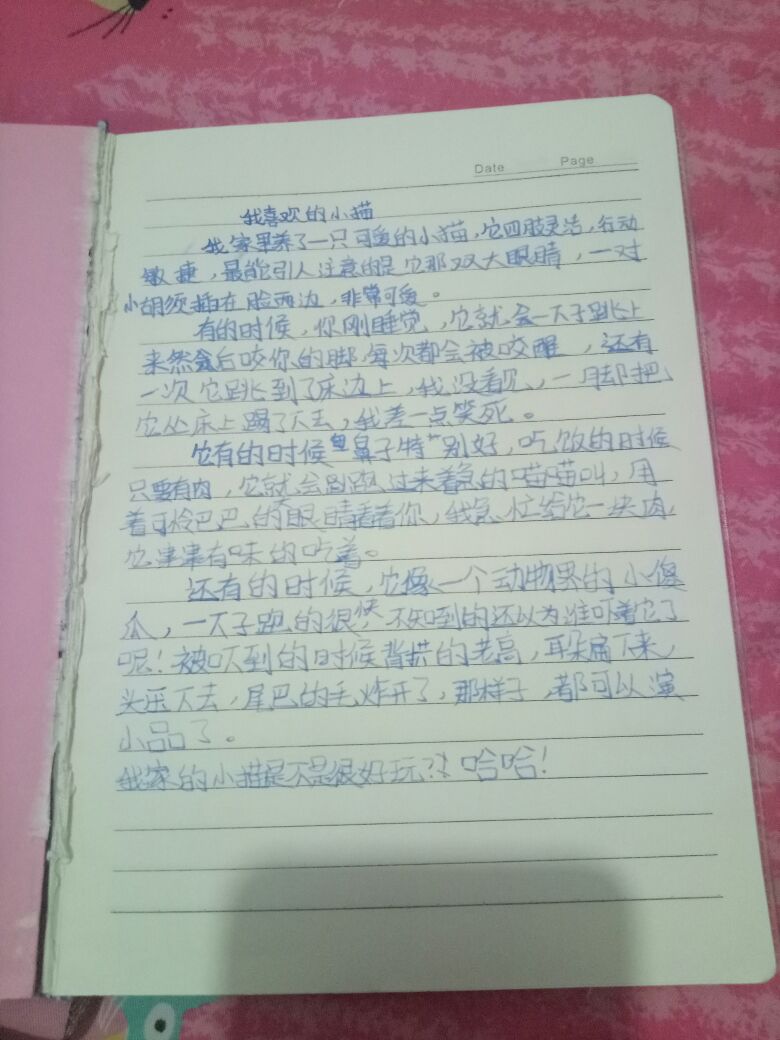 Date Page
我喜欢的小猫
我家里养了一只可爱的小猫，它四肢灵活，行动
敏捷，最能引人注意的是它那双大眼睛，一对
小胡须插在脸两边，非常可爱。
有的时候，你刚睡觉，它就会一下子跳上
来然后咬你的脚，每次都会被咬醒，还有
一次它跳到了床边上，我没看见，一脚把
它从床上踢了下去，我差一点笑死。
它有的时候“鼻子特”别好，吃饭的时候
只要有肉，它就会跑过来着急的喵喵叫，用
着可怜巴巴的眼睛看着你，我急忙给它一块肉，
它津津有味的吃着。
还有的时候，它像一个动物界的小傻
瓜，一下子跑的很快，不知到的还以为谁可着它了
呢！被吓到的时候背拱的老高，耳朵扁下来，
头压下去，尾巴的毛炸开了，那样子，都可以演
小品了。
我家的小猫是不是很好玩？！哈哈！